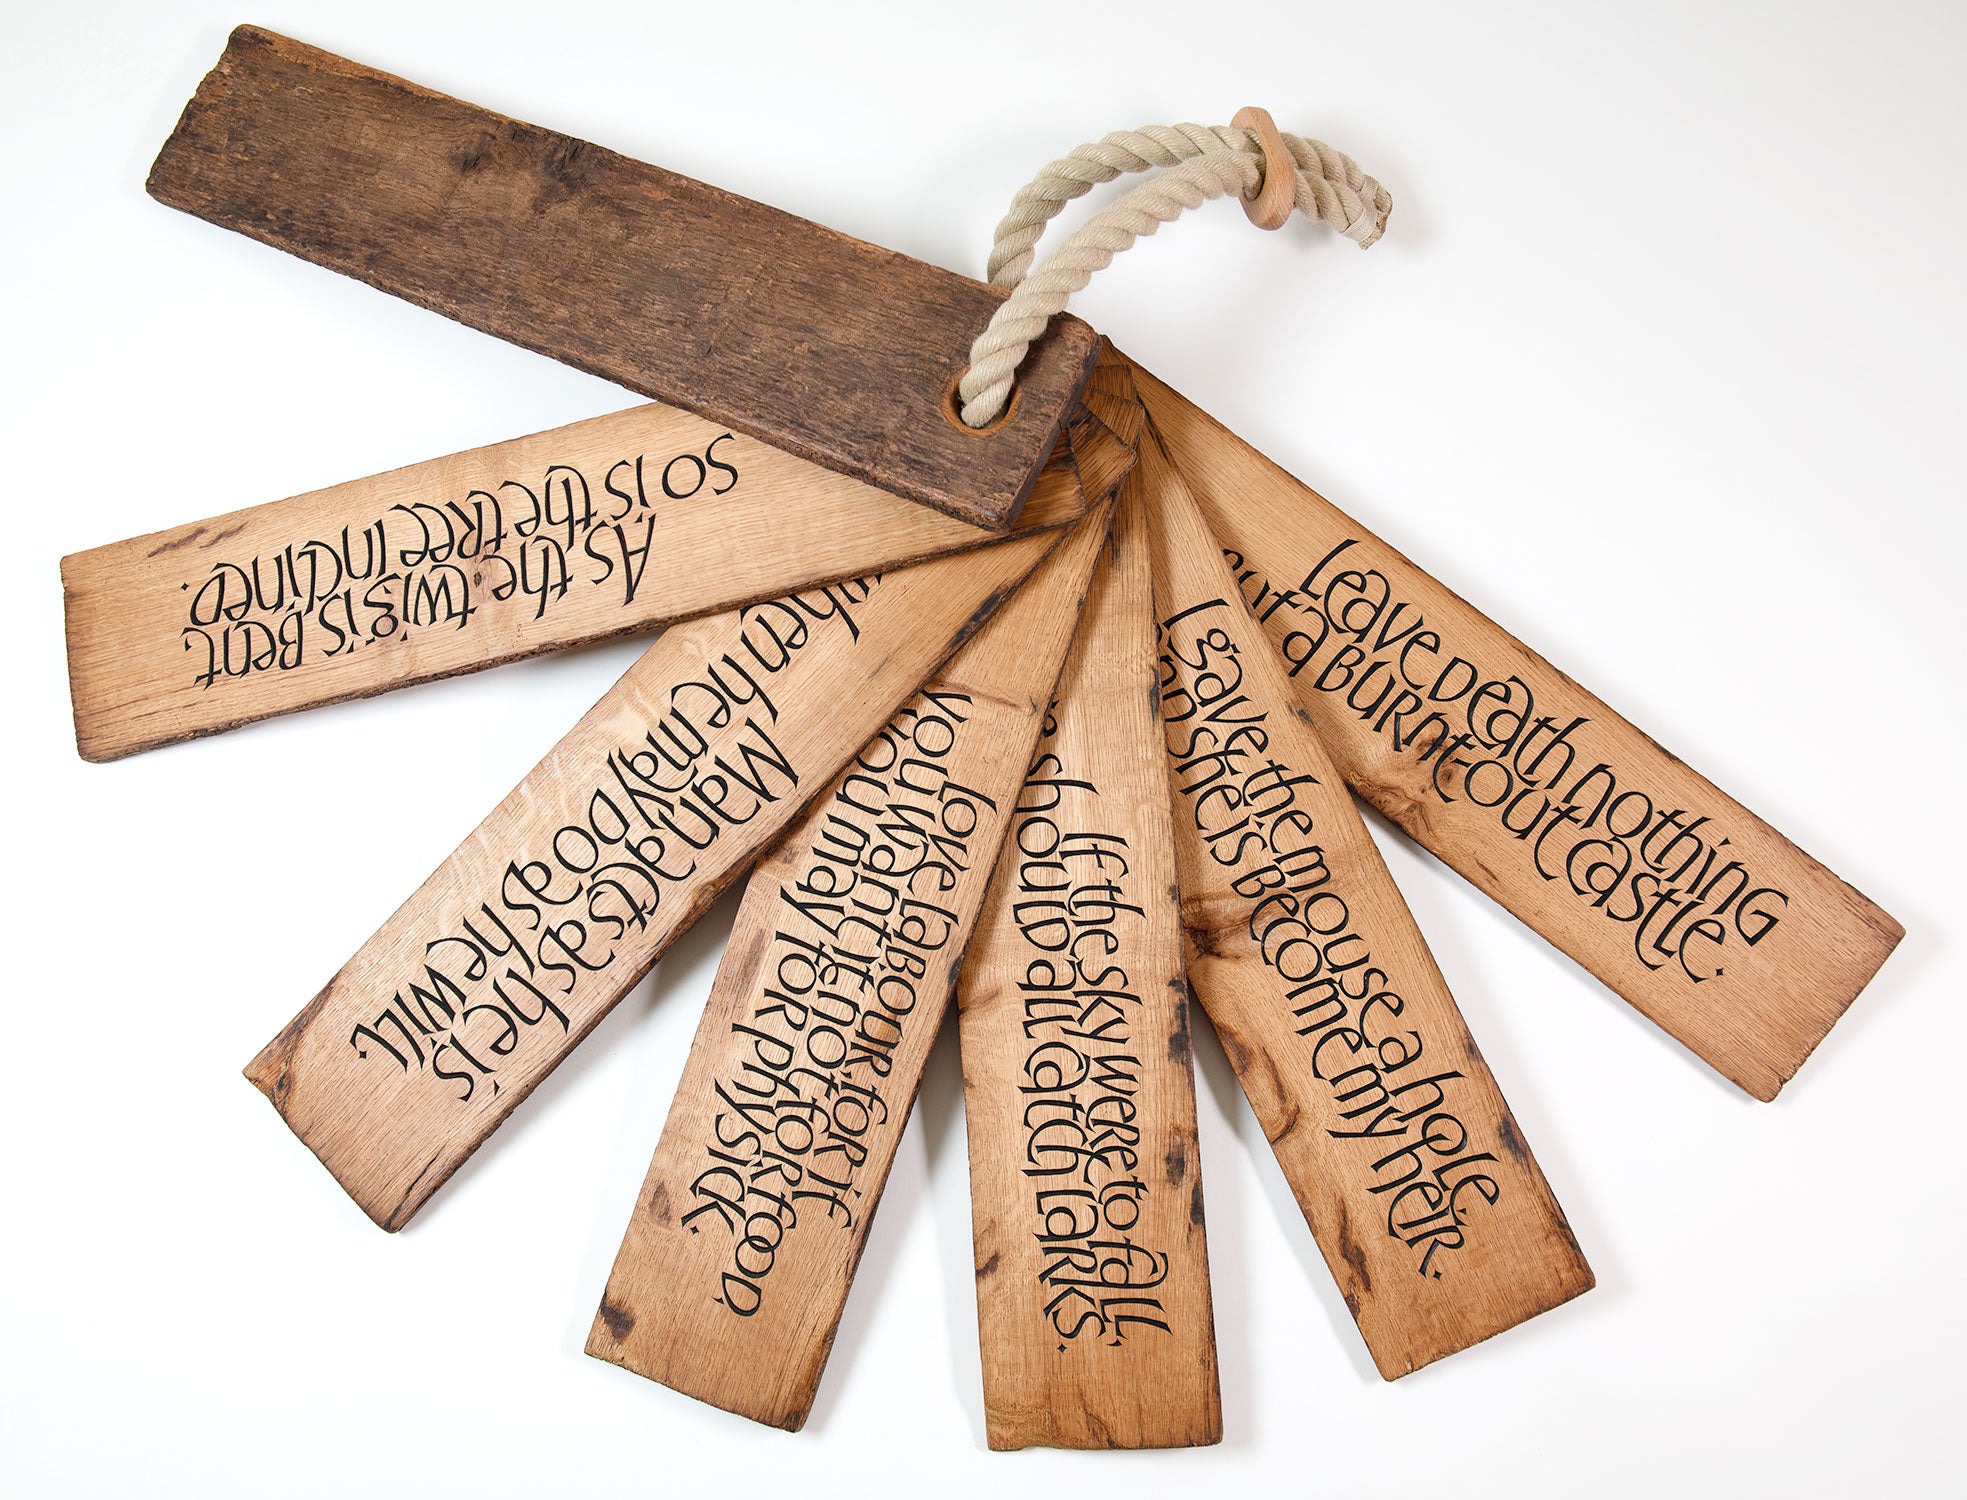 As the twig is Bent,
so is the tree inclined.
Man acts as he is
when he may do as he will.
love labour, for if
you want it not for food,
you may for physick.
If the sky were to fall,
should all catch larks.
I gave the mouse a hole
and she is become my heir.
Leave Death nothing
But a burnt-out castle.